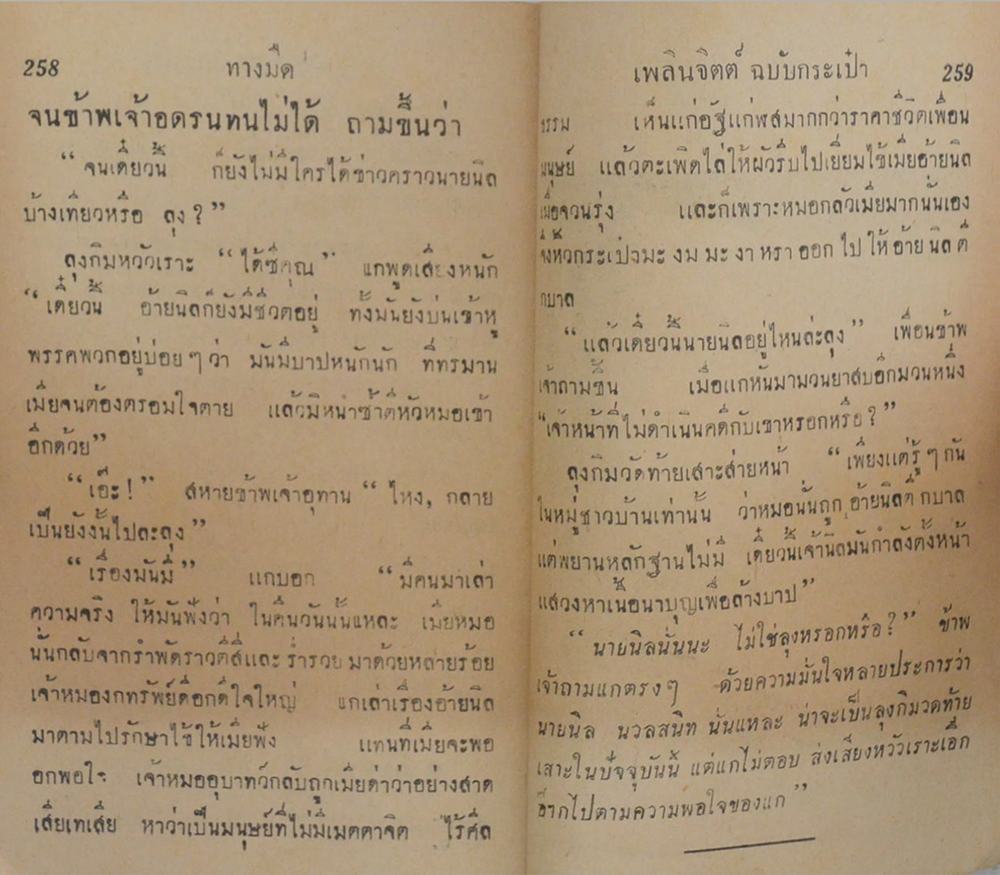 258 ทางมืด
จนข้าพเจ้าอดรนทนไม่ได้ ถามขึ้นว่า
“จนเดี๋ยวนี้ ก็ยังไม่มีใครได้ข่าวคราวนายนิล
บ้างเทียวหรือ ลุง?”
ลุงกิมหวัวเราะ “ได้ซีคุณ” แกพูดเสียงหนัก
“เดี๋ยวนี้ อ้ายนิลก็ยังมีชีวิตอยู่ ทั้งมันยังบ่นเข้าหู
พรรคพวกอยู่บ่อยๆว่า มันมีบาปหนักนัก ที่ทรมาน
เมียจนต้องตรอมใจตาย แล้วมิหนำซ้ำตีหัวหมอเข้า
อีกด้วย”
“เอ๊ะ!” สหายข้าพเจ้าอุทาน “ไหง, กลาย
เป็นยังงั้นไปละลุง”
“เรื่องมันมี” แกบอก “มีคนมาเล่า
ความจริง ให้มันฟังว่า ในคืนวันนั้นแหละ เมียหมอ
นั้นกลับจากรำพัดราวตีสี่และ ร่ำรวย มาด้วยหลายร้อย
เจ้าหมองกทรัพย์ดีอกดีใจใหญ่ แกเล่าเรื่องอ้ายนิล
มาตามไปรักษาไข้ให้เมียฟัง แทนที่เมียจะพอ
อกพอใจ เจ้าหมออุบาทว์กลับถูกเมียด่าว่าอย่างสาด
เสียเทเสีย หาว่าเป็นมนุษย์ที่ไม่มีเมตตาจิต ไร้ศีล
เพลินจิตต์ ฉบับกระเป๋า 259
ธรรม เห็นแก่อัฐแก่ฬสมากกว่าราคาชีวิตเพื่อน
มนุษย์ แล้วตะเพิดไล่ให้ผัวรีบไปเยี่ยมไข้เมียอ้ายนิล
เมื่อจวนรุ่ง และก็เพราะหมอกลัวเมียมากนั่นเอง
จึงหิ้วกระเป๋งมะ งม มะ งา หรา ออก ไป ให้ อ้าย นิล ตี
กบาล
“แล้วเดี๋ยวนี้นายนิลอยู่ไหนล่ะลุง” เพื่อนข้าพ
เจ้าถามขึ้น เมื่อแกหันมามวนยาสบอีกมวนหนึ่ง
“เจ้าหน้าที่ไม่ดำเนินคดีกับเขาหรอกหรือ?”
ลุงกิมวัดท้ายเสาะส่ายหน้า “เพียงแต่รู้ๆกัน
ในหมู่ชาวบ้านเท่านั้น ว่าหมอนั่นถูก อ้ายนิลตี กบาล
แต่พยานหลักฐานไม่มี เดี๋ยวนี้เจ้านิลมันกำลังตั้งหน้า
แสวงหาเนื้อนาบุญเพื่อล้างบาป”
“นายนิลนั่นนะ ไม่ใช่ลุงหรอกหรือ?” ข้าพ
เจ้าถามแกตรงๆ ด้วยความมั่นใจหลายประการว่า
นายนิล นวลสนิท นั่นแหละ น่าจะเป็นลุงกิมวดท้าย
เสาะในปัจจุบันนี้ แต่แกไม่ตอบ ส่งเสียงหวัวเราะเอิ๊ก
อ๊ากไปตามความพอใจของแก”